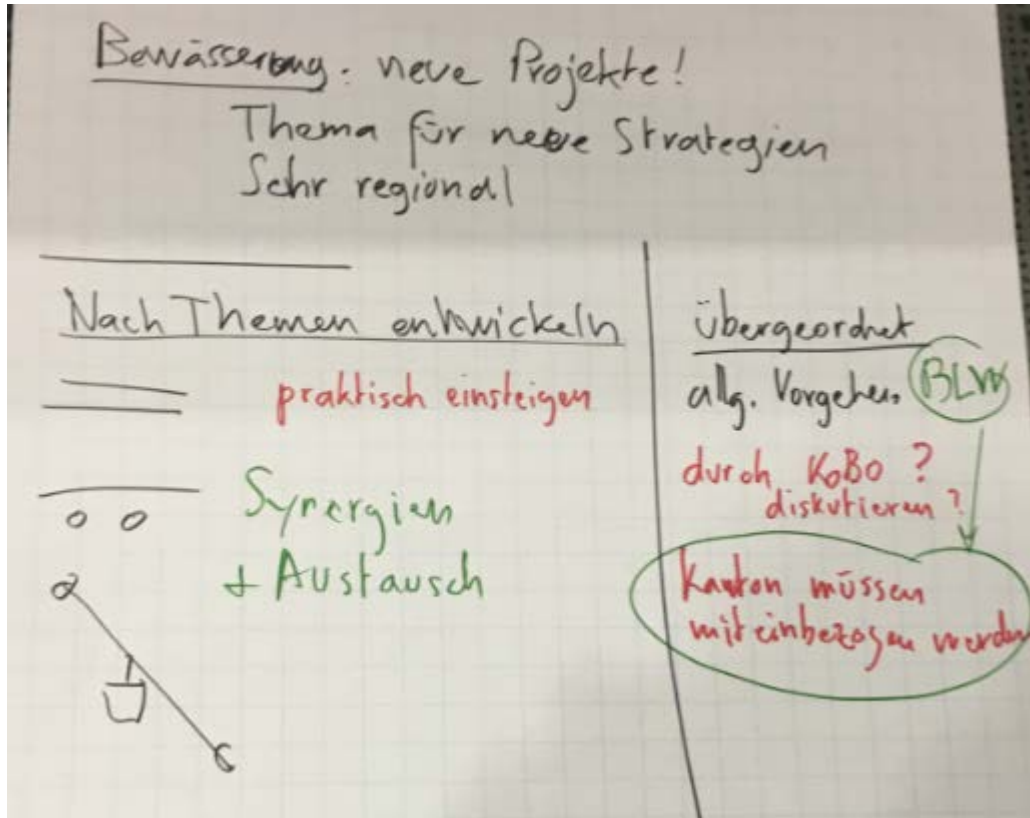 Bewässerung: neue Projekte!
Thema für neue Strategien
Sehr regional
Nach Themen entwickeln
praktisch einsteigen
Synergien
+ Austausch
übergeordnet
allg. Vorgehen. BLW
durch KoBo ?
diskutieren ?
Kanton müssen
miteinbezogen werden